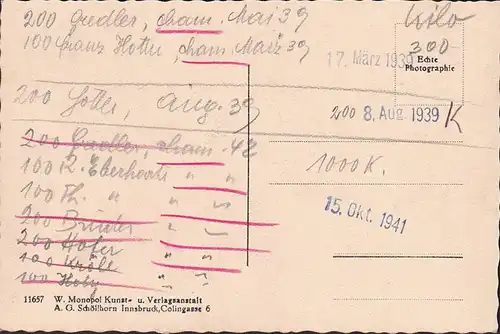 200 Gredler, cham. Mai 39
100 Franz Hotter, cham. März 39
300
Echte
Photographie
17. März 1939
200 Hotter, Aug. 39
200 8. Aug. 1939 K
200 Gredler, cham. 42
100 R. Eberhoert " "
100 Th. " " "
1000 K.
200 Bruder " "
200 Hofer
100 Kröll " "
100 Holy " "
15. Okt. 1941
11657 W. Monopol Kunst- u. Verlagsanstalt
A. G. Schöllhorn Innsbruck, Colingasse 6